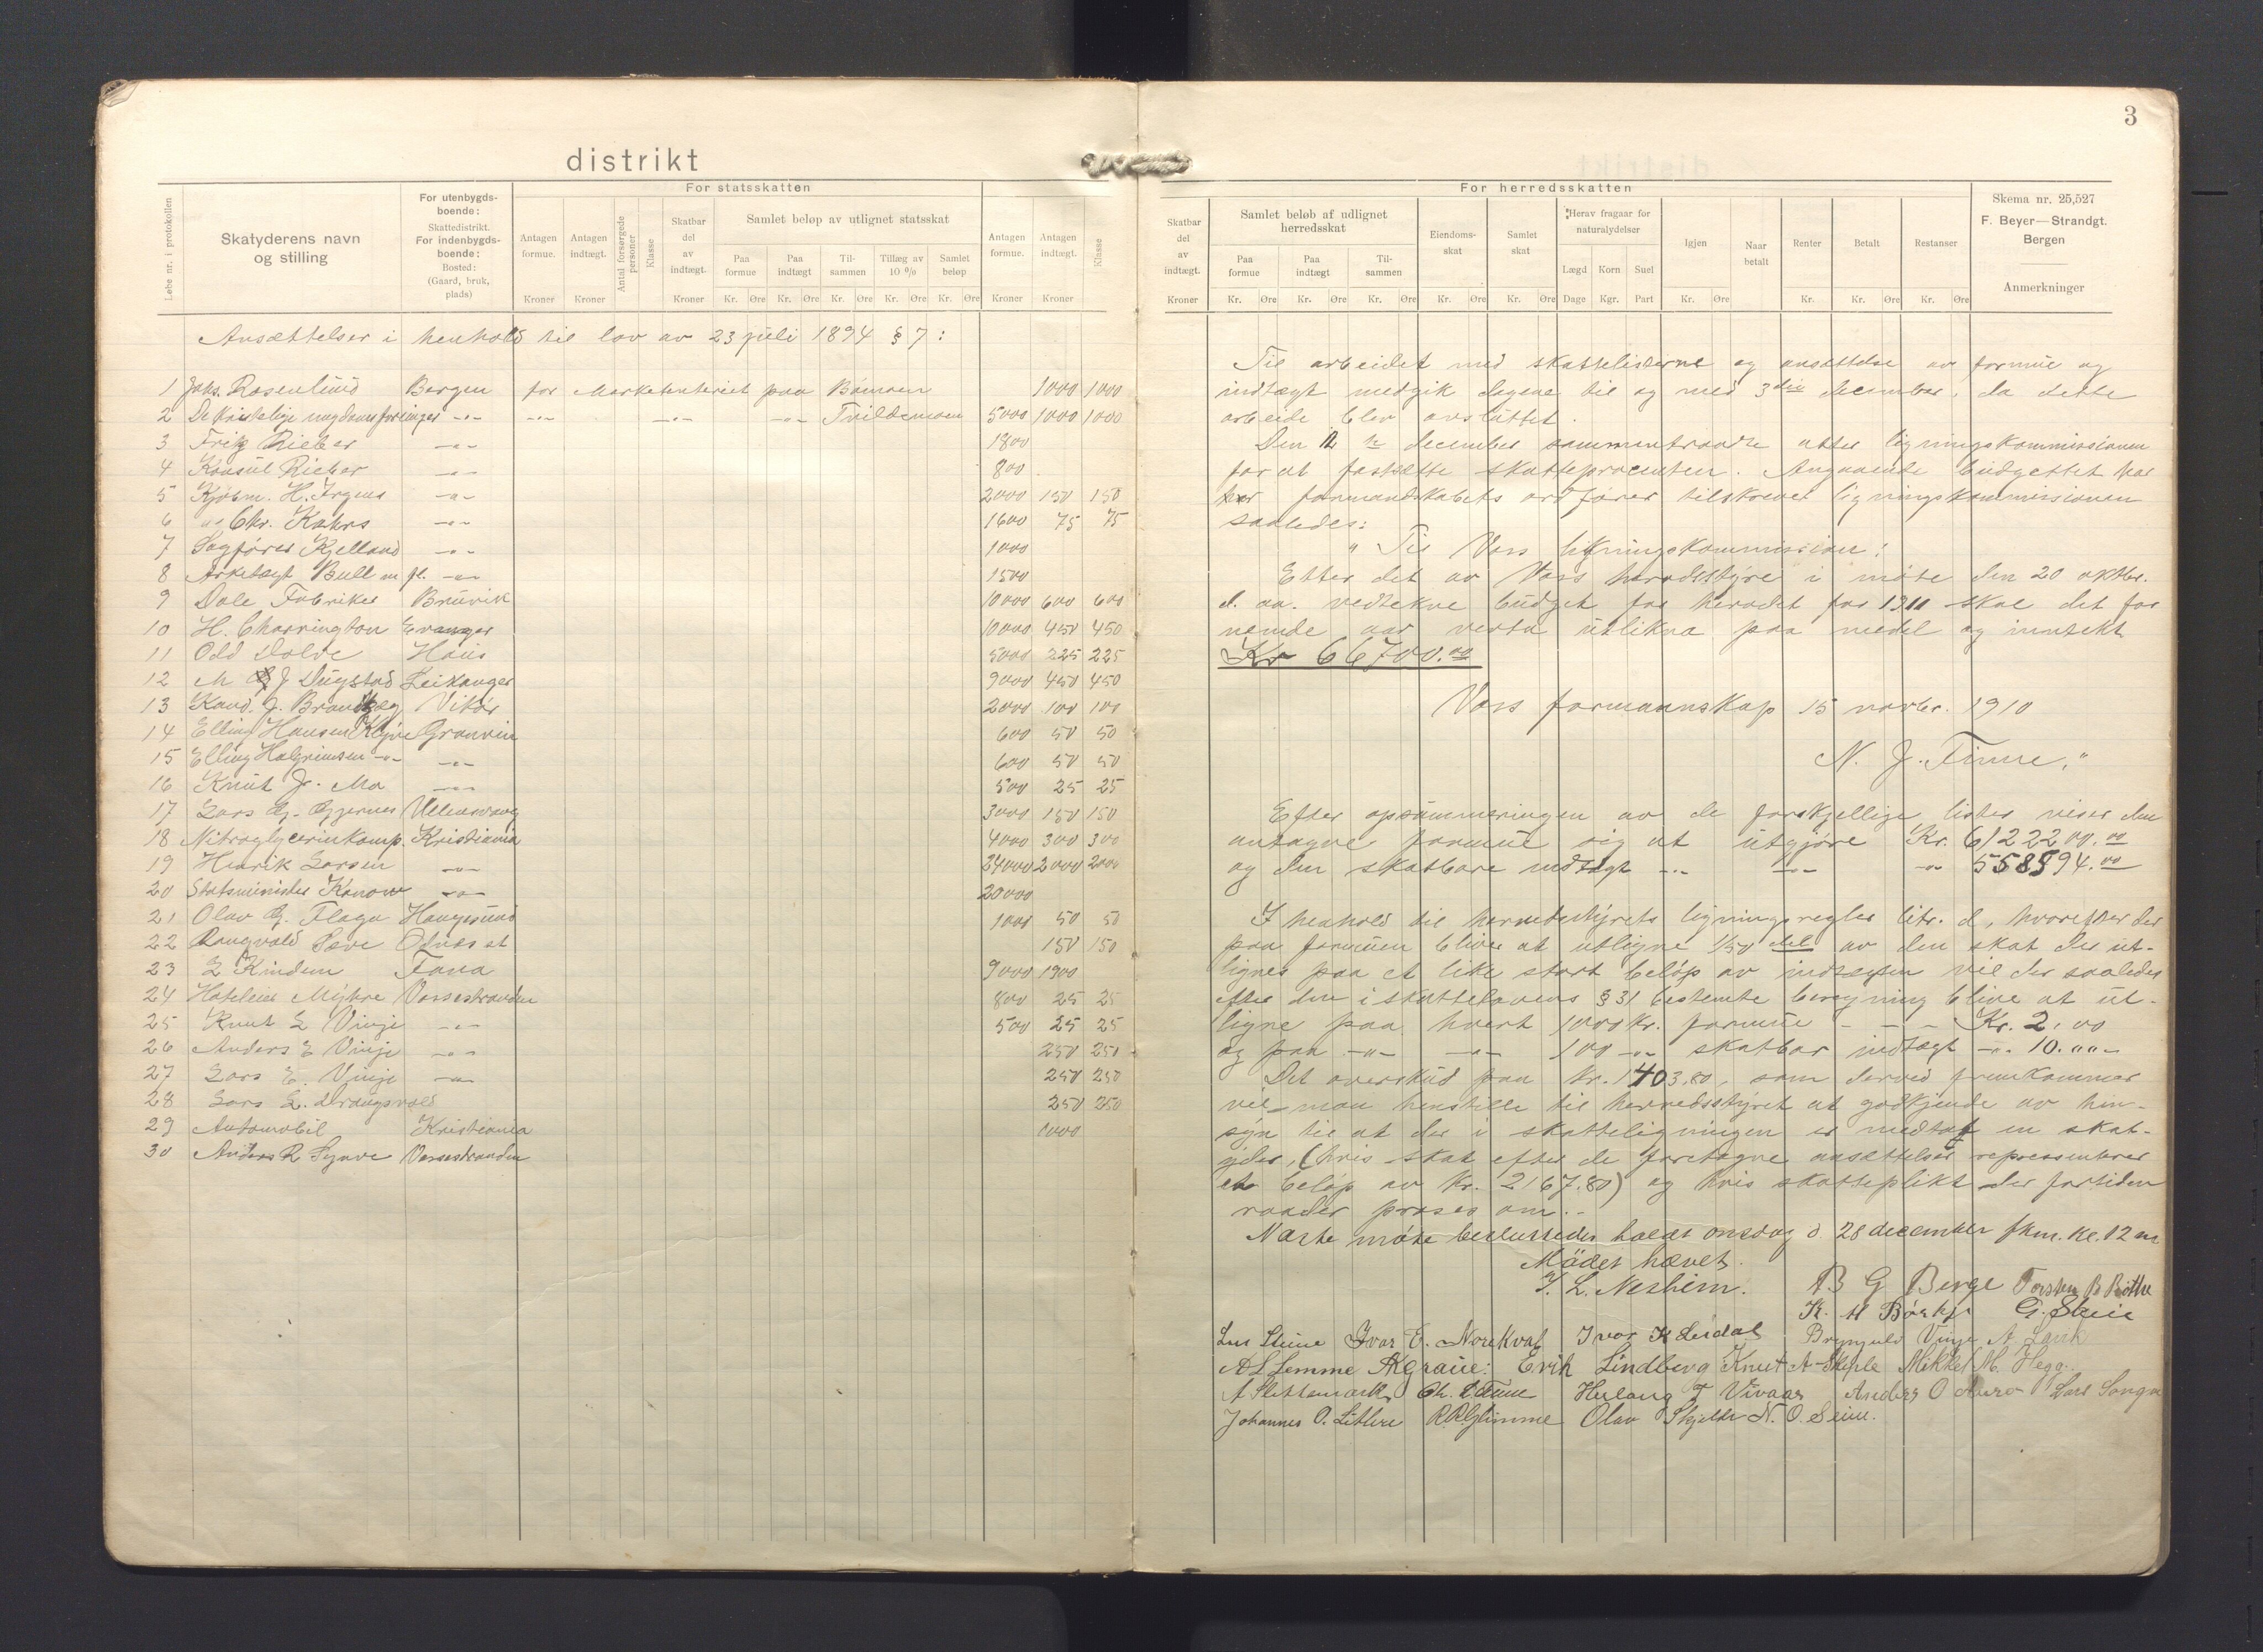 3
distrikt
Løbe nr. i protokollen
Skatyderens navn og stilling
For utenbygds-boende: Skattedistrikt. For indenbygds-boende: Bosted: (Gaard, bruk, plads)
For statsskatten
Antagen formue. Kroner
Antagen indtægt. Kroner
Antal forsørgede personer
Klasse
Skatbar del av indtægt. Kroner
Samlet beløp av utlignet statsskat
Paa formue Kr. Øre
Paa indtægt Kr. Øre
Til-sammen Kr. Øre
Tillæg av 10 % Kr. Øre
Samlet beløp Kr. Øre
Antagen formue. Kroner
Antagen indtægt. Kroner
Klasse
Ansættelser i henhold til lov av 23 juli 1894 § 7:
1 Johs. Rosenlund Bergen for Marketenteriet paa Bømoen 1000 1000
2 De kristelige ungdomsforeninger -"- -"- -"- -"- Tvildemoen 5000 1000 1000
3 Fritz Rieber -"- 1800
4 Konsul Rieber -"- 800
5 Kjøbm. H. Irgens -"- 2000 150 150
6 -"- Chr. Kahrs -"- 1600 75 75
7 Sagfører Kjelland -"- 1000
8 Arkitegt Bull m fl. -"- 1500
9 Dale Fabriker Bruvik 10000 600 600
10 H. Charrington Evanger 10000 450 450
11 Odd Dolve Haus 5000 225 225
12 M J Dugstad Leikanger 9000 450 450
13 Kand. J. Brandtzæg Vikør 2000 100 100
14 Elling Hansen Kjerve Granvin 600 50 50
15 Elling Halgrimsen -"- -"- 600 50 50
16 Knut Jr. Mo -"- 500 25 25
17 Lars G. Gjernes Ullensvang 3000 150 150
18 Nitroglycerinkomp. Kristiania 4000 300 300
19 Henrik Larsen -"- 24000 2000 2000
20 Statsminister Konow -"- 20000
21 Olav G. Flage Haugesund 1000 50 50
22 Rangvald Sæve Odnæs st 150 150
23 L Kindem Fana 9000 1900
24 Hoteleier Myhre Vossestranden 800 25 25
25 Knut L Vinje -"- 500 25 25
26 Anders E Vinje -"- 250 250
27 Lars E. Vinje -"- 250 250
28 Lars L. Drangsvold 250 250
29 Automobil Kristiania 1000
30 Anders R Synve Vossestranden
For herredsskatten
Skatbar del av indtægt. Kroner
Samlet beløb af udlignet herredsskat
Paa formue Kr. Øre
Paa indtægt Kr. Øre
Til-sammen Kr. Øre
Eiendoms-skat Kr. Øre
Samlet skat Kr. Øre
Herav fragaar for naturalydelser
Lægd Dage
Korn Kgr.
Suel Part
Igjen Kr. Øre
Naar betalt
Renter Kr.
Betalt Kr. Øre
Restanser Kr. Øre
Skema nr. 25,527
F. Beyer—Strandgt.
Bergen
Anmerkninger
Til arbeidet med skattelisterne og ansættelse av formue og
indtægt medgik dagene til og med 3die december, da dette
arbeide blev avsluttet.
Den 12te december sammentraadte atter ligningskommissionen
for at fastsætte skatteprocenten. Angaaende budgettet har
herr formandskabets ordfører tilskrevet ligningskommissionen
saaledes:
"Til Voss likningskommission:
Etter det av Voss heradsstyre i møte den 20 oktbr.
d. aa. vedtekne budget for heradet for 1911 skal det for
nemde aar verta utlikna paa medel og inntekt
Kr 66700.00
Voss formannskap 15 novbr. 1910
N. J. Finne."
Efter opsummeringen av de forskjellige lister viser den
antagne formue sig at utgjøre Kr. 6122200.00
og den skatbare indtægt -"- -"- -"- 558594.00
I henhold til herredsstyrets ligningsregler litr. d, hvorefter der
paa formuen bliver at utligne 1/50 del av den skat der ut-
lignes paa et like stort beløp av indtægten vil der saaledes
efter den i skattelovens § 31 bestemte beregning blive at ut-
ligne paa hvert 1000 Kr. formue - - - Kr. 2,00
og paa -"- -"- 100 -"- skatbar indtægt -"- 10."" -
Det overskud paa Kr. 1403,80, som derved fremkommer
vil man henstille til herredsstyret at godkjende av hen-
syn til at der i skatteligningen er medtat en skat-
yder, (hvis skat efter de foretagne ansættelser representerer
et beløp av Kr. 2167.80) og hvis skatteplikt der fortiden
raader proses om. -
Næste møte besluttedes holdt onsdag d. 28 december fkm. kl. 12 m
Mødet hævet.
I. L. Neshim. B G Berge Torsten B Rothe
K. M Børhje G. Skeie
Lars Slume Ivar E. Norekval Ivar K Leidal Brynjulv Vinje A Larsk
A L Lemme AKgraue: Erik Lindberg Knut A Skiple Mikkel M. Hegg.
A Slettemark Ch. L. Finne Herlaug T Vivaas Anders O Mero Lars Songve
Johannes O. Litlere R.R.Glimme Olav Skjelde N. O. Seim.